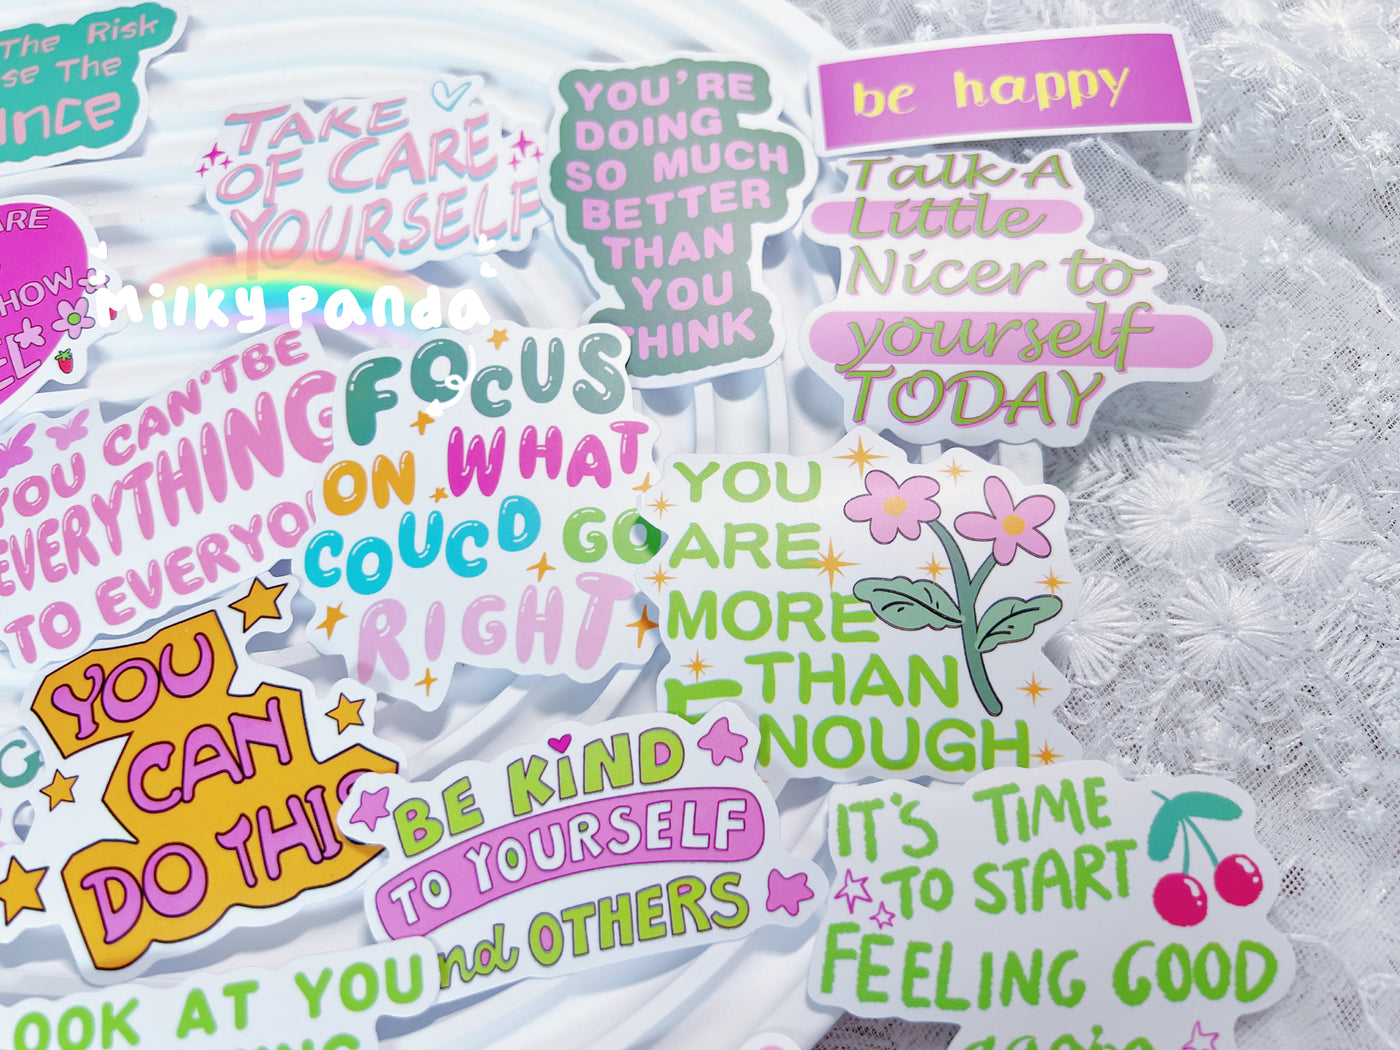 The Risk
The
TAKE
OF CARE
YOURSELF
YOU'RE
DOING
SO MUCH
BETTER
THAN
YOU
THINK
be happy
Talk A
Little
Nicer to
yourself
TODAY
Milky Panda
YOU CAN'T BE
EVERYTHING
TO
FOCUS
ON WHAT
COUCD GO
RIGHT
YOU
ARE
MORE
THAN
ENOUGH
YOU
CAN
DO THIS
BE KIND
TO YOURSELF
and OTHERS
IT'S TIME
TO START
FEELING GOOD
AT YOU